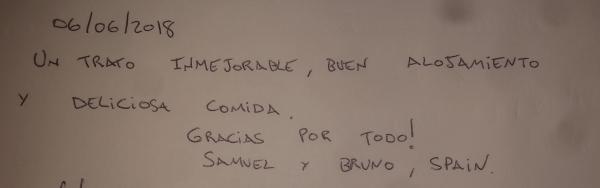 06/06/2018
UN TRATO INMEJORABLE, BUEN ALOJAMIENTO
Y DELICIOSA COMIDA.
GRACIAS POR TODO!
SAMUEL Y BRUNO, SPAIN.